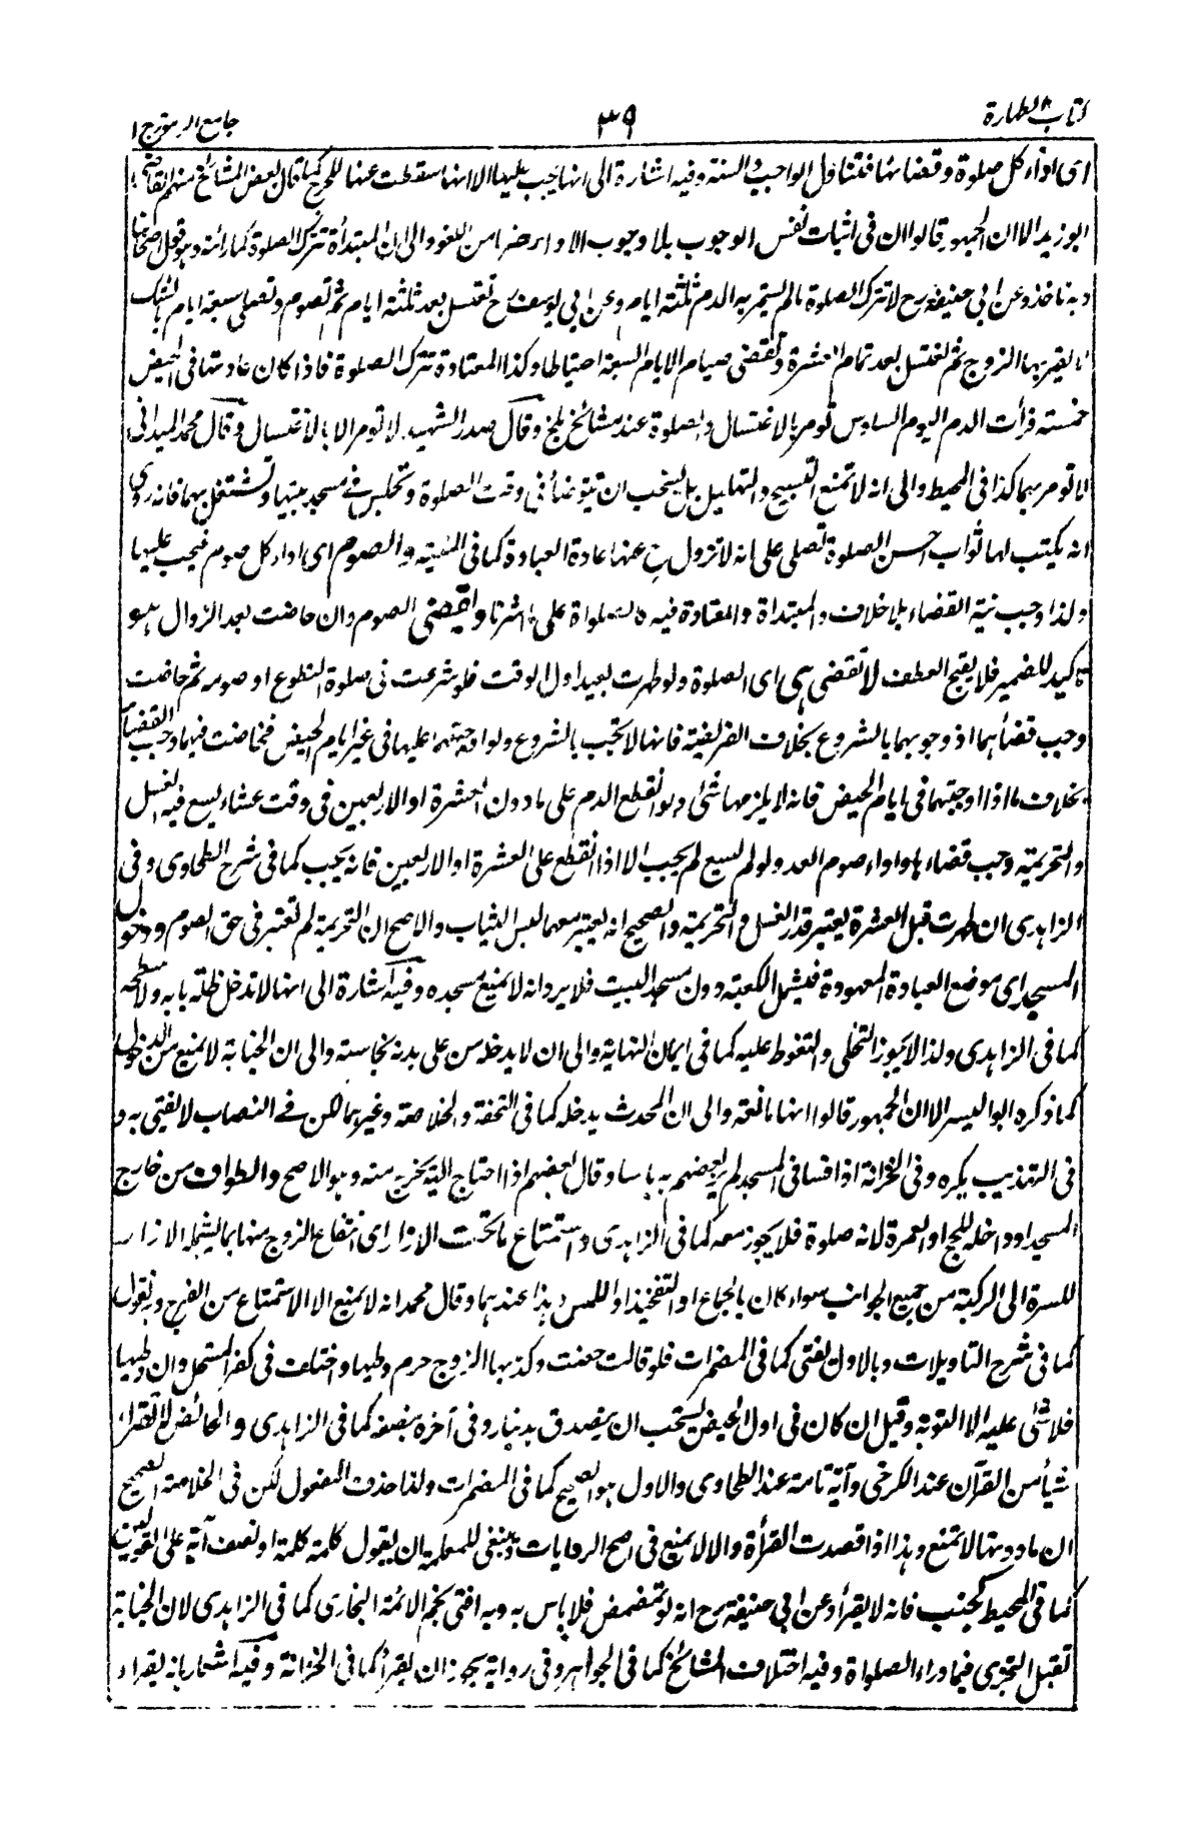 كتاب الطهارة ٣٩ جامع الرموز ج ١
اى اداء كل صلوة وقضائها فتتناول الواجب والسنة وفيه اشارة الى انها يجب عليها الا انها سقطت عنها للحرج كما قال بعض المشائخ منهم القاضى
ابو زيد الا ان الجمهور قالوا ان فى اثبات نفس الوجوب بلا وجوب الاداء ضربا من اللغو والى ان المبتدأة تترك الصلوة كما رأته وهو قول صاحبنا
وبه ناخذ وعن ابى حنيفة رح لا تترك الصلوة ما لم يستمر به الدم ثلثة ايام وعن ابى يوسف رح تغتسل بعد ثلثة ايام ثم تصوم وتصلى سبعة ايام بالشك
لا يقربها الزوج ثم تغتسل بعد تمام العشرة وتقضى صيام الايام السبعة احتياطا وكذا المعتادة تترك الصلوة فاذا كان عادتها فى الحيض
خمسة فرأت الدم اليوم السادس تومر بالاغتسال والصلوة عند مشائخ بلخ وقال صدر الشهيد لا تومر الا بالاغتسال وقال محمد الميدانى
لا تومر بهما كذا فى المحيط والى انه لا تمنع التسبيح والتهليل بل يستحب ان تتوضأ فى وقت الصلوة وتجلس فى مسجد بيتها وتشتغل بهما فانه روى
انه يكتب لها ثواب احسن الصلوة تصلى على انه لا تزول عنها عادة العبادة كما فى المنية والصوم اى اداء كل صوم فيجب عليها
ولذا وجب نية القضاء بلا خلاف والمبتدأة والمعتادة فيه كالصلواة على ما اشرنا وتقضى الصوم وان حاضت بعد الزوال هو
تاكيد للضمير فلا يقبح العطف لا تقضى هى اى الصلوة ولو طهرت بعيد اول الوقت فلو شرعت فى صلوة التطوع او صومه ثم حاضت
وجب قضاؤهما اذ وجوبهما بالشروع بخلاف الفريضة فانها لا تجب بالشروع ولو اوجبتهما عليها فى غير ايام الحيض فحاضت فيها وجب القضاء
بخلاف ما اذا اوجبتهما فى ايام الحيض فانه لا يلزمها شئ ولو انقطع الدم على ما دون العشرة او الاربعين فى وقت عشاء يسع فيه الغسل
والتحريمة وجب قضاءها واداء صوم الغد ولو لم يسع لم يجب الا اذا انقطع على العشرة او الاربعين فانه يجب كما فى شرح الطحاوى وفى
الزاهدى ان طهرت قبل العشرة يعتبر قدر الغسل والتحريمة والصحيح انه يعتبر معهما لبس الثياب والاصح ان التحريمة لم تعتبر فى حق الصوم ودخول
المسجد اى موضع العبادة المعهودة فيشمل الكعبة دون مسجد البيت فلا يرد انه لا يمنع مسجده وفيه اشارة الى انها لا تدخل ظلة بابه ولا سطحه
كما فى الزاهدى ولذا لا يجوز التخلى والتغوط عليه كما فى ايمان النهاية والى ان لا يدخله من على بدنه نجاسته والى ان الجنابة لا يمنع من الدخول
كما ذكره ابو اليسر الا ان الجمهور قالوا انها مانعة والى ان المحدث يدخله كما فى التحفة والخلاصة وغيرهما لكن فى النصاب لا يفتى به و
فى التهذيب يكره وفى الخزانة اذا فسا فى المسجد لم ير بعضهم به باسا وقال بعضهم اذا احتاج اليه يخرج منه وهو الاصح والطواف من خارج
المسجد او داخله للحج او العمرة لانه صلوة فلا يجوز معه كما فى الزاهدى واستمتاع ما تحت الازار اى انتفاع الزوج منها بما يشمله الازار
للسرة الى الركبة من جميع الجوانب سواء كان بالجماع او التفخيذ او اللمس وهذا عندهما وقال محمد انه لا يمنع الا الاستمتاع من الفرج وبه نقول
كما فى شرح التاويلات وبالاول يفتى كما فى المضمرات فلو قالت حضت وكذبها الزوج حرم وطيها واختلف فى كفر المستحل وان وطيها
فلا شئ عليه الا التوبة وقيل ان كان فى اول الحيض يستحب ان يتصدق بدينار وفى آخره بنصفه كما فى الزاهدى والحائض لا تقرأ
شيأ من القرآن عند الكرخى وآية تامة عند الطحاوى والاول هو الصحيح كما فى المضمرات ولذا حذف المفعول لكن فى الخلاصة الصحيح
ان ما دونها لا تمنع وهذا اذا قصدت القرأة والا لا يمنع فى اصح الروايات وينبغى للمعلمة ان يقول كلمة كلمة او نصف آية على القولين
كما فى المحيط كجنب فانه لا يقرأ وعن ابى حنيفة رح انه لو تمضمض فلا باس به وبه افتى نجم الائمة البخارى كما فى الزاهدى لان الجنابة
تقبل التجزى فيما وراء الصلواة وفيه اختلاف المشائخ كما فى الجواهر وفى رواية يجوز ان يقرأ كما فى الخزانة وفيه اشعار بانه يقراء